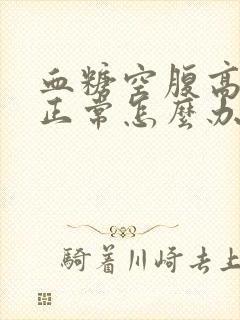 血糖空腹高
正常怎麼办
騎着川崎去上